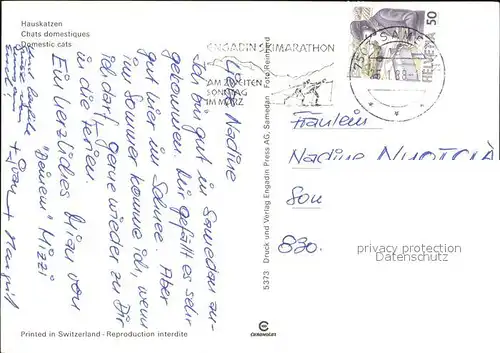 Hauskatzen
Chats domestiques
Domestic cats
ENGADIN SKIMARATHON
AM ZWEITEN
SONNTAG
IM MÄRZ
HELVETIA 50
Liebe Nadine
Ich bin gut in Samedan an-
gekommen. Mir gefällt es sehr
gut hier im Schnee. Aber
im Sommer komme ich, wenn
ich darf, gerne wieder zu Dir
in die Ferien.
Ein herzliches Miau von
"Deinem" Mizzi
Fräulein
Nadine
830.
privacy protection
Datenschutz
5373 Druck und Verlag Engadin Press AG, Samedan · Foto Reinhard
Printed in Switzerland - Reproduction interdite